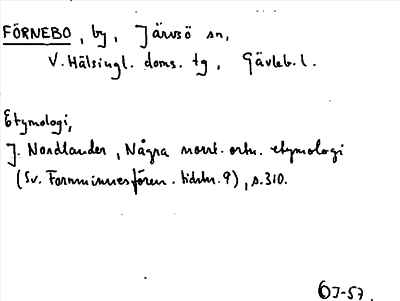 FÖRNEBO, by, Järvsö sn,
V. Hälsingl. doms. tg, Gävleb. l.
Etymologi,
J. Nordlander, Några norrl. ortn. etymologi
(Sv. Fornminnesfören. tidskr. 9), s. 310.
OJ-57.